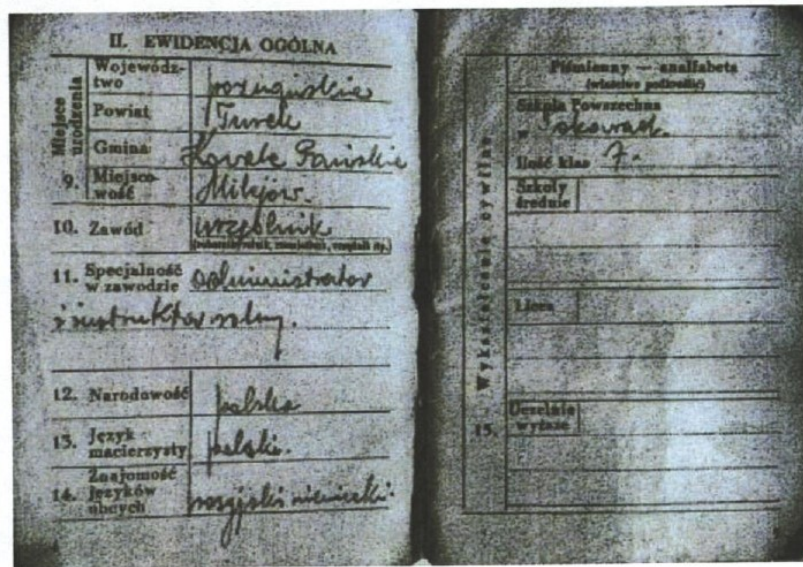 II. EWIDENCJA OGÓLNA
Miejsce urodzenia
Wojewódz-
two poznańskie
Powiat Turek
Gmina Kowale Pańskie
9. Miejsco-
wość Milejów.
10. Zawód urzędnik
11. Specjalność
w zawodzie administrator
i instruktor rolny.
12. Narodowość polska
13. Język
macierzysty polski.
14. Znajomość
języków
obcych rosyjski niemiecki.
Piśmienny — analfabeta
(właściwe podkreślić)
15. Wykształcenie cywilne
Szkoła Powszechna
w
Ilość klas 7.
Szkoły
średnie
Licea
Uczelnie
wyższe